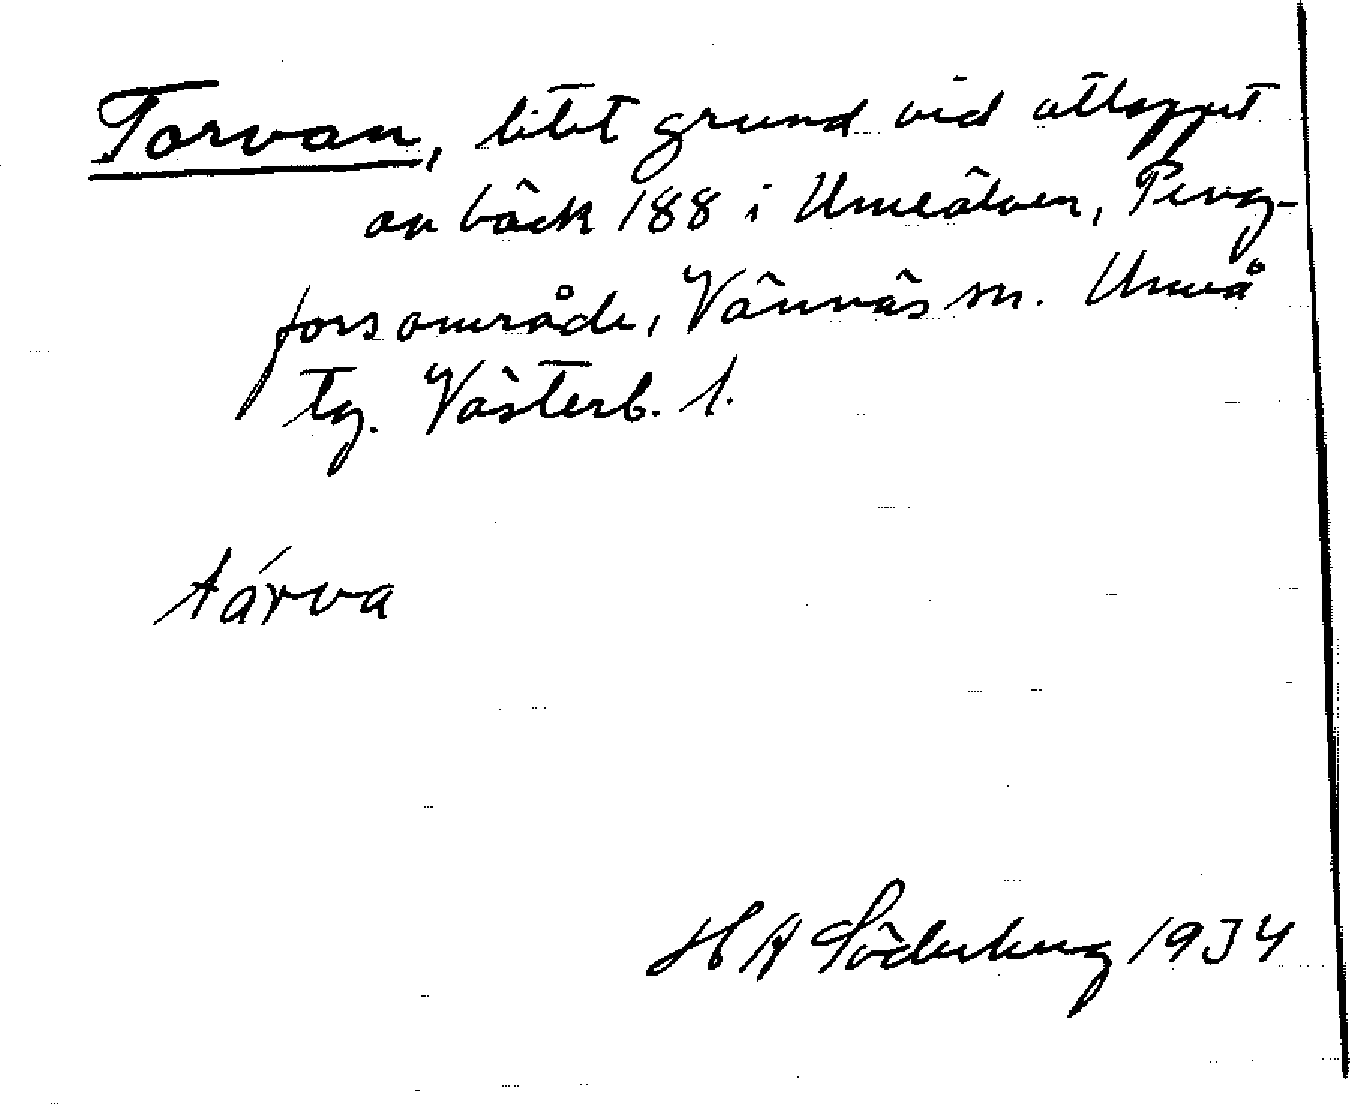 Tarvan, litet grund vid utloppet
av bäck 188 i Umeälven, Peng-
forsområde, Vännäs sn. Umeå
tg. Västerb. l.
tárva
H A Söderberg 1934